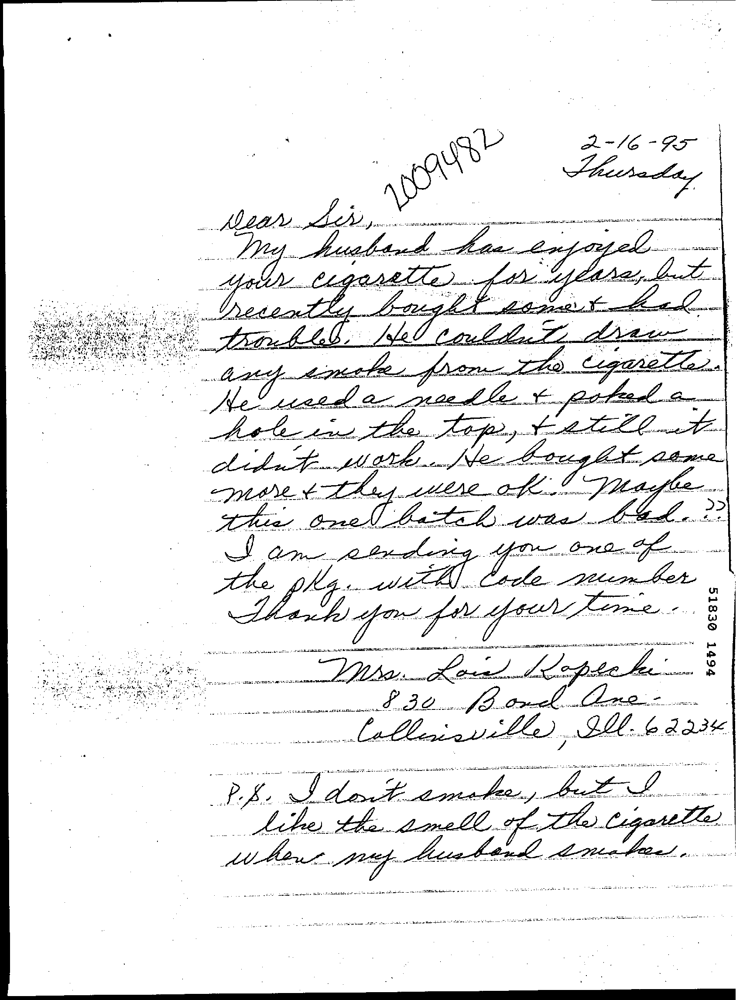 2-16-95
Thursday
2009482
Dear Sir,
My husband has enjoyed
your cigarette for years, but
recently bought some & had
troubles. He couldn't draw
any smoke from the cigarette.
He used a needle & poked a
hole in the top, & still it
didn't work. He bought some
more & they were ok. Maybe
this one batch was bad. ??
I am sending you one of
the pkg. with code number
Thank you for your time.
Mrs. Lois Kopecki
830 Bond Ave.
Collinsville, Ill. 62234
P.S. I don't smoke, but I
like the smell of the cigarette
when my husband smokes.
51830 1494